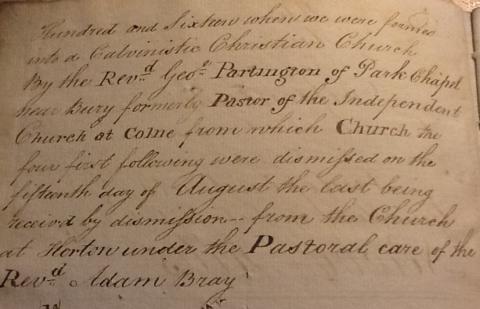 Hundred and Sixteen when we were formed
into a Calvinistic Christian Church
By the Revd. Geo. Partington of Park Chapel
near Bury formerly Pastor of the Independent
Church at Colne from which Church the
four first following were dismissed on the
fifteenth day of August the last being
receivd by dismission -- from the Church
at Horton under the Pastoral care of the
Revd. Adam Bray